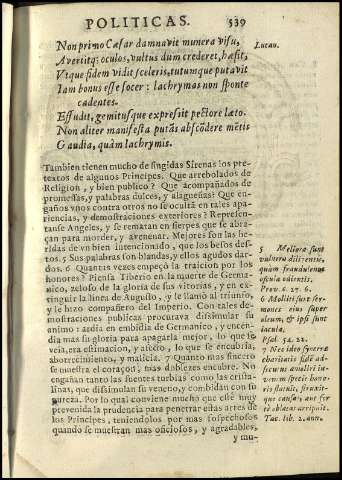 POLITICAS. 539
Non primo Cæsar damnavit munera visu,
Avertitq; oculos, vultus dum crederet, hæsit,
Vtque fidem vidit sceleris, tutumque putavit
Iam bonus esse socer: lachrymas non sponte
cadentes.
Effudit, gemitusque expressit pectore læto.
Non aliter manifesta putãs abscõdere mẽtis
Gaudia, quàm lachrymis.
Lucan.
Tambien tienen mucho de fingidas Sirenas los pre-
textos de algunos Principes. Que arrebolados de
Religion, y bien publico? Que acompañados de
promessas, y palabras dulces, y alagueñas? Que en-
gaños vnos contra otros no se ocultã en tales apa-
riencias, y demostraciones exteriores? Represen-
tanse Angeles, y se rematan en sierpes que se abra-
çan para morder, y avenenar. Mejores son las he-
ridas de vn bien intencionado, que los besos des-
tos. 5 Sus palabras son blandas, y ellos agudos dar-
dos. 6 Quantas vezes empeçò la traicion por los
honores? Piensa Tiberio en la muerte de Germa-
nico, zeloso de la gloria de sus vitorias, y en ex-
tinguir la linea de Augusto, y le llamò al triunfo,
y le hizo compañero del Imperio. Con tales de-
mostraciones publicas procurava dissimular su
animo: ardia en embidia de Germanico, y encen-
dia mas su gloria para apagarla mejor, lo que se
veia, era estimacion, y afecto, lo que se encubria,
aborrecimiento, y malicia. 7 Quanto mas sincero
se muestra el coraçon, mas doblezes encubre. No
engañan tanto las fuentes turbias como las crista-
linas, que dissimulan su veneno, y combidan con su
pureza. Por lo qual conviene mucho que estè muy
prevenida la prudencia para penetrar estas artes de
los Principes, teniendolos por mas sospechosos
quando se muestran mas oficiosos, y agradables,
y mu-
5 Meliora sunt
vulnera diligentis,
quàm fraudulenta
oscula odientis.
Prov. c. 27. 6.
6 Molliti sunt ser-
mones eius super
oleum, & ipsi sunt
iacula.
Psal. 54. 22.
7 Nec ideo synceræ
charitatis fidẽ ad-
secutus amoliri iu-
venem specie hono-
ris statuit, struxit-
que causas, aut for-
tè oblatas arripuit.
Tac. lib. 2. ann.